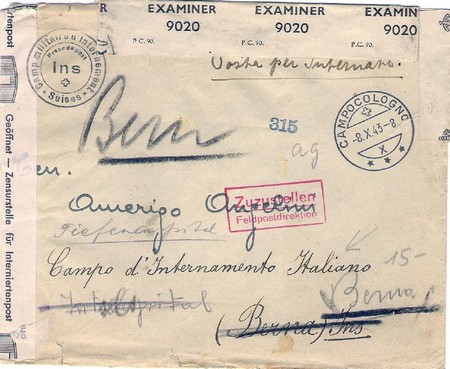 EXAMINER EXAMINER EXAMIN
9020 9020 9020
P.C. 90. P.C. 90. P.C. 90.
Posta per Internato.
Camp militaire d'internement
Ins
Suisse
Bern
315
ag
CAMPOCOLOGNO
-8.X.43-8
X
Amerigo Angelini
Zuzustellen
Feldpostdirektion
Tiefenauspital
Campo d'Internamento Italiano
15-
Berna
(Berna) Ins
Geöffnet — Zensurstelle für Interniertenpost